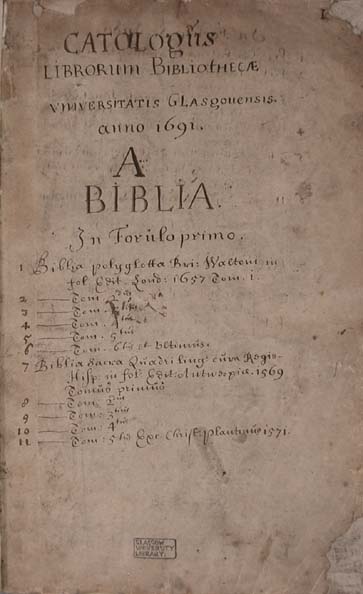 1
CATOLOGUS
LIBRORUM BIBLIOTHECÆ
VNIVERSITATIS GLASGOUENSIS.
anno 1691.
A
BIBLIA.
In Forulo primo.
1 Biblia polyglotta Bri: Waltoni in
fol. Edit. Lond: 1657 Tom. 1.
2 Tom. 2dus
3 Tom.
4 Tom. 4tus
5 Tom. 5tus
6 Tom. 6tus et Vltimus.
7 Biblia Sacra Quadriling: cura Regis
Hisp. in fol. Edit: Antwerpiæ. 1569
Tomus primus
8 Tom. 2us
9 Tom. 3tius
10 Tom. 4tus
11 Tom: 5tus Exc Christ: Plantinus 1571.
GLASGOW
UNIVERSITY
LIBRARY.